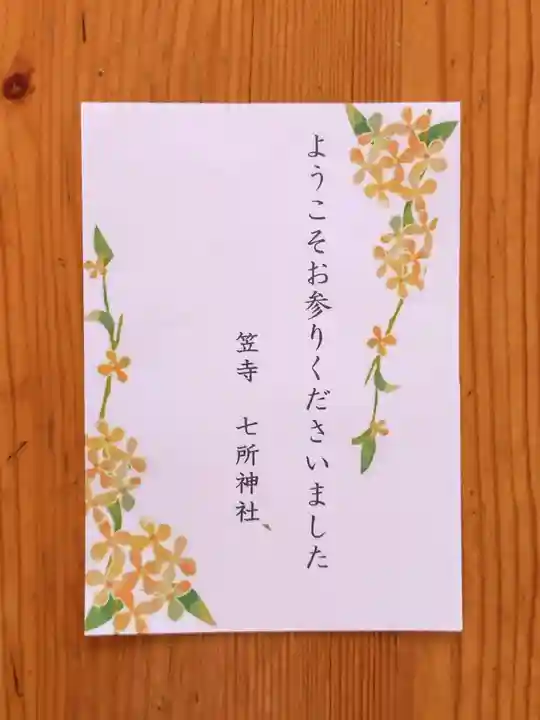 ようこそお参りくださいました
笠寺　七所神社